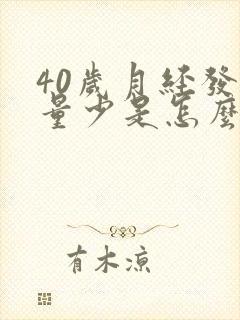 40歲月經發
量少是怎麼
有木涼